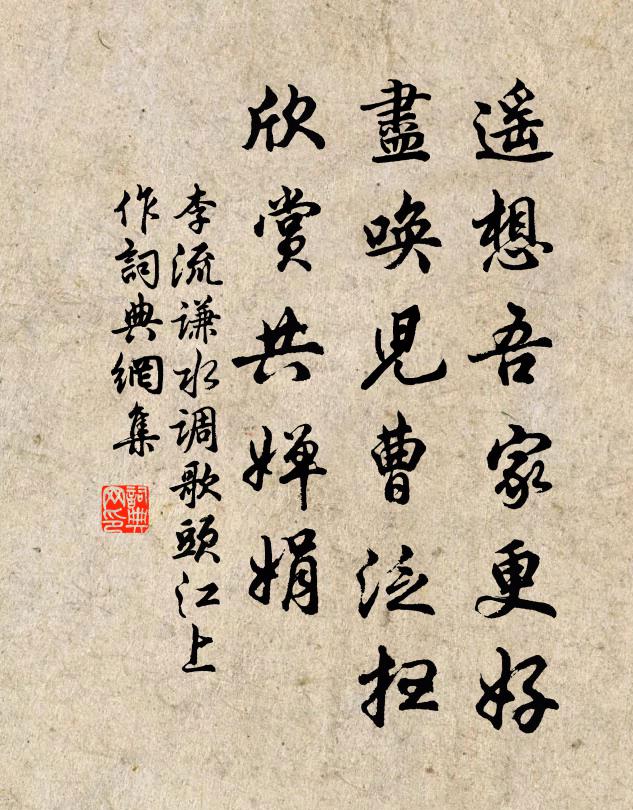 遥想吾家更好
盡喚児曹泛扫
欣賞共嬋娟
李流謙水调歌頭江上
作詞典網集
詞典
网印